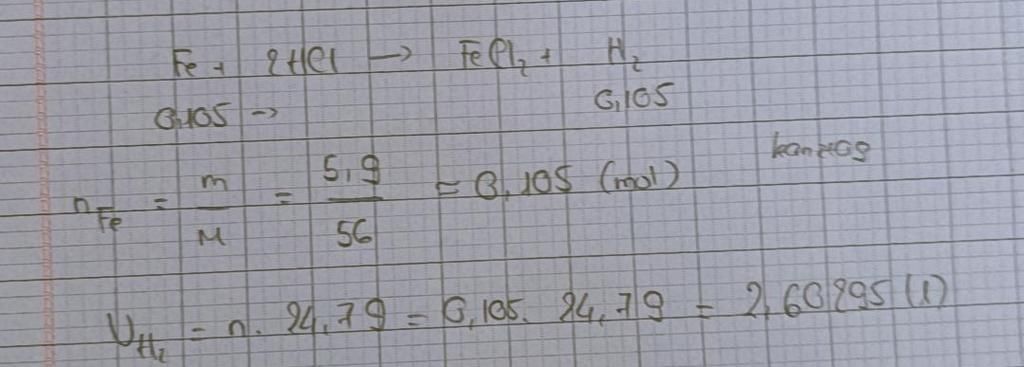 Fe + 2HCl → FeCl₂ + H₂
0,105 → 0,105
n_Fe = m/M = 5,9/56 = 0,105 (mol)
V_H₂ = n. 24,79 = 0,105. 24,79 = 2,60295 (l)